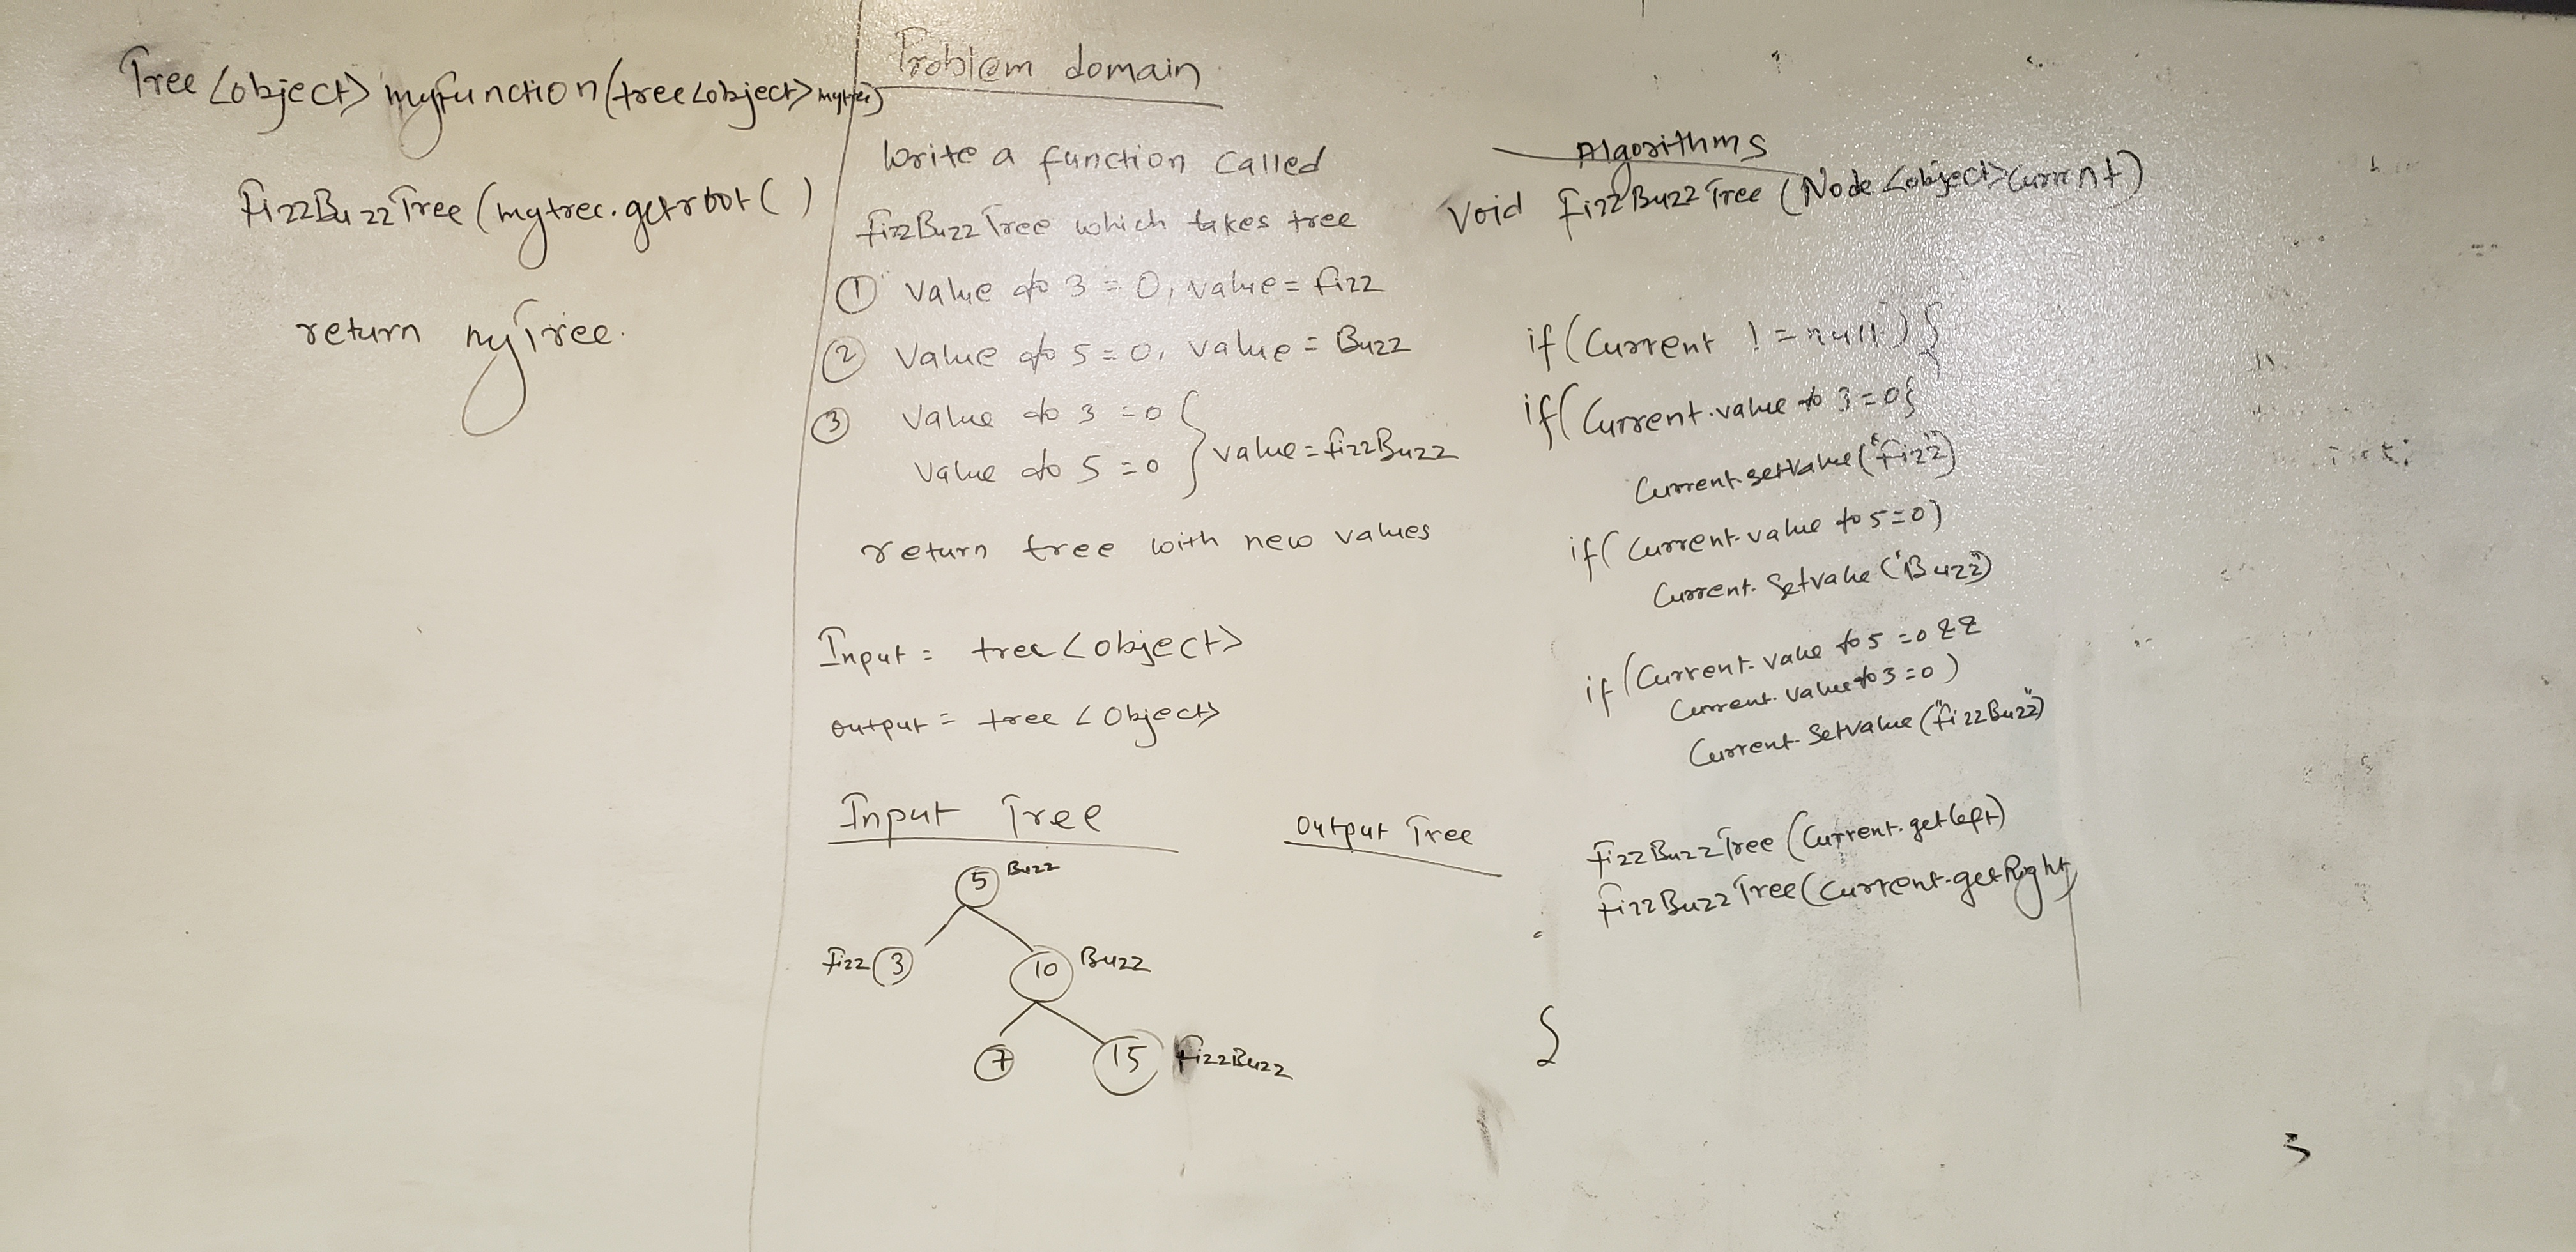 Tree <object> myfunction(tree<object> mytree)
FizzBuzzTree (mytree.getroot()
return myTree.
Problem domain
Write a function called
FizzBuzzTree which takes tree
① Value % 3 = 0, value = fizz
② Value % 5 = 0, value = Buzz
③ Value % 3 = 0
Value % 5 = 0 } value = fizzBuzz
return tree with new values
Input = tree <object>
output = tree <Object>
Input Tree
5 Buzz
Fizz 3
10 Buzz
7
15 FizzBuzz
Output Tree
Algorithms
Void FizzBuzzTree (Node <object> Current)
if (Current != null) {
if( Current.value % 3 = 0{
Current.setValue("Fizz")
if( Current.value % 5 = 0)
Current.Setvalue ("Buzz")
if (Current.value % 5 = 0 &&
Current.Value % 3 = 0 )
Current.Setvalue ("FizzBuzz")
FizzBuzzTree (Current.getleft)
FizzBuzzTree (Current.getRight)
}